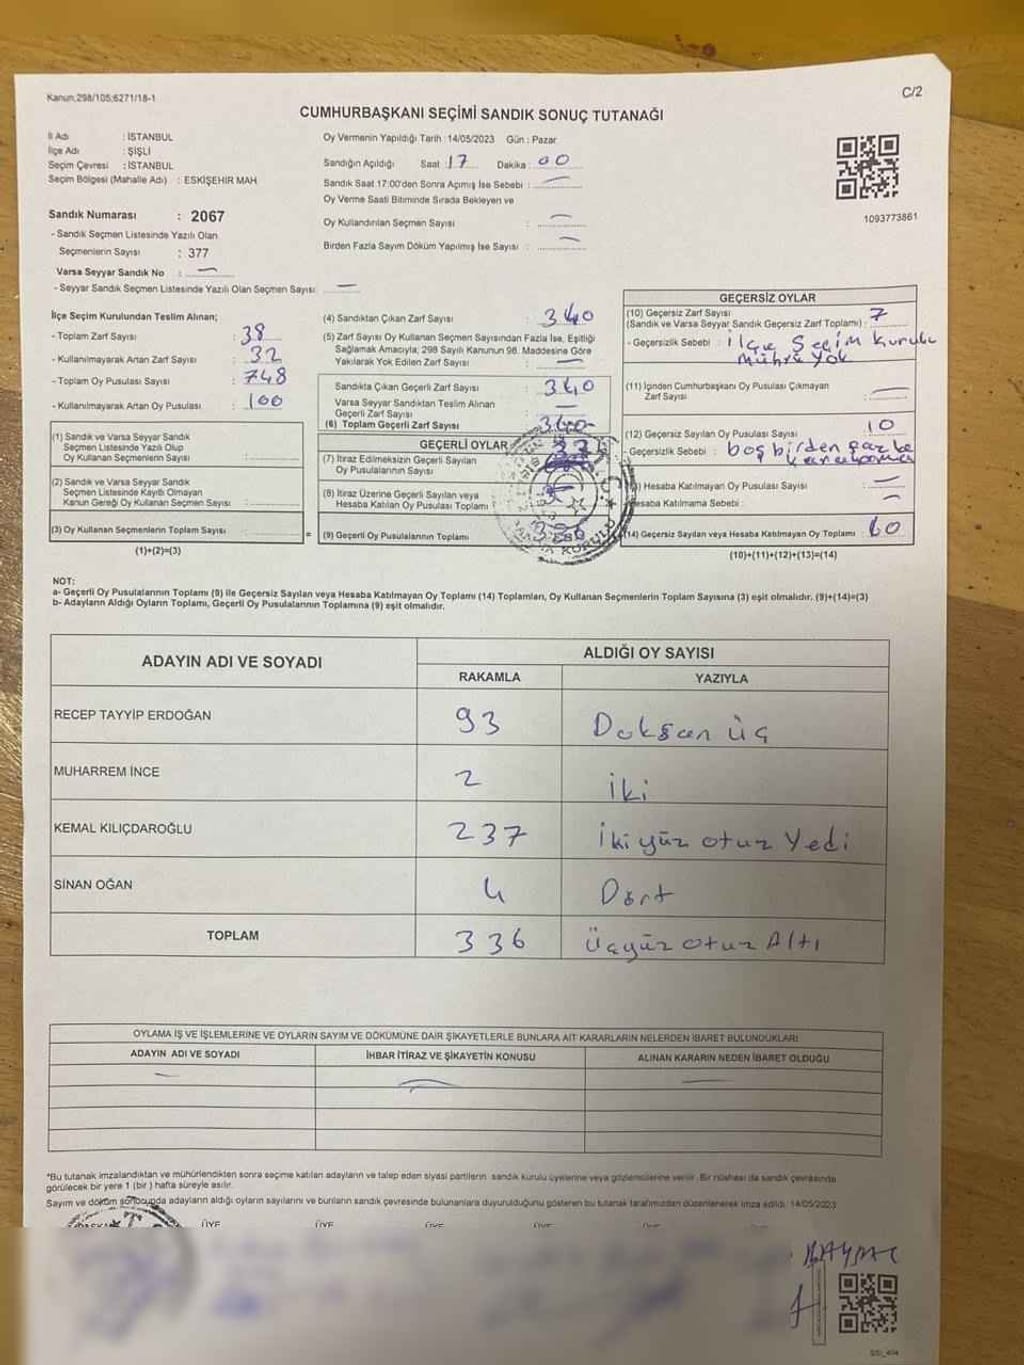 Kanun,298/105;6271/18-1
C/2
CUMHURBAŞKANI SEÇİMİ SANDIK SONUÇ TUTANAĞI
İl Adı : İSTANBUL
İlçe Adı : ŞİŞLİ
Seçim Çevresi : İSTANBUL
Seçim Bölgesi (Mahalle Adı) : ESKİŞEHİR MAH
Sandık Numarası : 2067
- Sandık Seçmen Listesinde Yazılı Olan
Seçmenlerin Sayısı : 377
Varsa Seyyar Sandık No : —
- Seyyar Sandık Seçmen Listesinde Yazılı Olan Seçmen Sayısı: —
Oy Vermenin Yapıldığı Tarih : 14/05/2023 Gün : Pazar
Sandığın Açıldığı Saat : 17 Dakika : 00
Sandık Saat 17:00'den Sonra Açımış İse Sebebi : —
Oy Verme Saati Bitiminde Sırada Bekleyen ve
Oy Kullandırılan Seçmen Sayısı : —
Birden Fazla Sayım Döküm Yapılmış İse Sayısı : —
1093773861
İlçe Seçim Kurulundan Teslim Alınan;
- Toplam Zarf Sayısı : 38
- Kullanılmayarak Artan Zarf Sayısı : 32
- Toplam Oy Pusulası Sayısı : 748
- Kullanılmayarak Artan Oy Pusulası : 100
(1) Sandık ve Varsa Seyyar Sandık
Seçmen Listesinde Yazılı Olup
Oy Kullanan Seçmenlerin Sayısı :
(2) Sandık ve Varsa Seyyar Sandık
Seçmen Listesinde Kayıtlı Olmayan
Kanun Gereği Oy Kullanan Seçmen Sayısı :
(3) Oy Kullanan Seçmenlerin Toplam Sayısı :
(1)+(2)=(3)
=
(4) Sandıktan Çıkan Zarf Sayısı : 340
(5) Zarf Sayısı Oy Kullanan Seçmen Sayısından Fazla İse, Eşitliği
Sağlamak Amacıyla; 298 Sayılı Kanunun 98. Maddesine Göre
Yakılarak Yok Edilen Zarf Sayısı : —
Sandıkta Çıkan Geçerli Zarf Sayısı : 340
Varsa Seyyar Sandıktan Teslim Alınan
Geçerli Zarf Sayısı : —
(6) Toplam Geçerli Zarf Sayısı : 340
GEÇERLİ OYLAR
(7) İtiraz Edilmeksizin Geçerli Sayılan
Oy Pusulasının Sayısı
(8) İtiraz Üzerine Geçerli Sayılan veya
Hesaba Katılan Oy Pusulası Toplamı
(9) Geçerli Oy Pusulalarının Toplamı
GEÇERSİZ OYLAR
(10) Geçersiz Zarf Sayısı : 7
(Sandık ve Varsa Seyyar Sandık Geçersiz Zarf Toplamı)
- Geçersizlik Sebebi : İlçe Seçim Kurulu
Mührü Yok
(11) İçinden Cumhurbaşkanı Oy Pusulası Çıkmayan
Zarf Sayısı : —
(12) Geçersiz Sayılan Oy Pusulası Sayısı : 10
Geçersizlik Sebebi : boş birden fazla
) Hesaba Katılmayan Oy Pusulası Sayısı : —
Hesaba Katılmama Sebebi : —
(14) Geçersiz Sayılan veya Hesaba Katılmayan Oy Toplamı : 60
(10)+(11)+(12)+(13)=(14)
NOT:
a- Geçerli Oy Pusulalarının Toplamı (9) ile Geçersiz Sayılan veya Hesaba Katılmayan Oy Toplamı (14) Toplamları, Oy Kullanan Seçmenlerin Toplam Sayısına (3) eşit olmalıdır. (9)+(14)=(3)
b- Adayların Aldığı Oyların Toplamı, Geçerli Oy Pusulalarının Toplamına (9) eşit olmalıdır.
ADAYIN ADI VE SOYADI
ALDIĞI OY SAYISI
RAKAMLA YAZIYLA
RECEP TAYYİP ERDOĞAN 93 Doksan üç
MUHARREM İNCE 2 İki
KEMAL KILIÇDAROĞLU 237 İkiyüz otuz Yedi
SİNAN OĞAN 4 Dört
TOPLAM 336 Üçyüz otuz Altı
OYLAMA İŞ VE İŞLEMLERİNE VE OYLARIN SAYIM VE DÖKÜMÜNE DAİR ŞİKAYETLERLE BUNLARA AİT KARARLARIN NELERDEN İBARET BULUNDUKLARI
ADAYIN ADI VE SOYADI İHBAR İTİRAZ VE ŞİKAYETİN KONUSU ALINAN KARARIN NEDEN İBARET OLDUĞU
— — —
*Bu tutanak imzalandıktan ve mühürlendikten sonra seçime katılan adayların ve talep eden siyasi partilerin sandık kurulu üyelerine veya gözlemcilerine verilir. Bir nüshası da sandık çevresinde
görülecek bir yere 1 (bir ) hafta süreyle asılır.
Sayım ve döküm sonucunda adayların aldığı oyların sayılarını ve bunların sandık çevresinde bulunanlara duyurulduğunu gösteren bu tutanak tarafımızdan düzenlenerek imza edildi. 14/05/2023
ÜYE ÜYE ÜYE ÜYE ÜYE